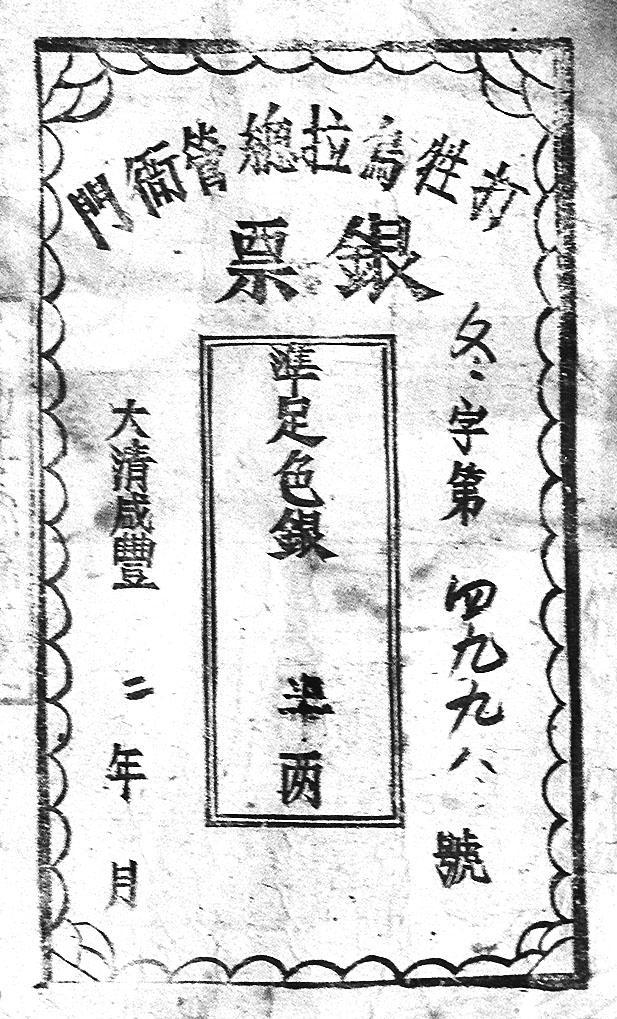 打牲烏拉總管衙門
銀票
冬字第四九九八號
準足色銀 两
大清咸豐二年 月